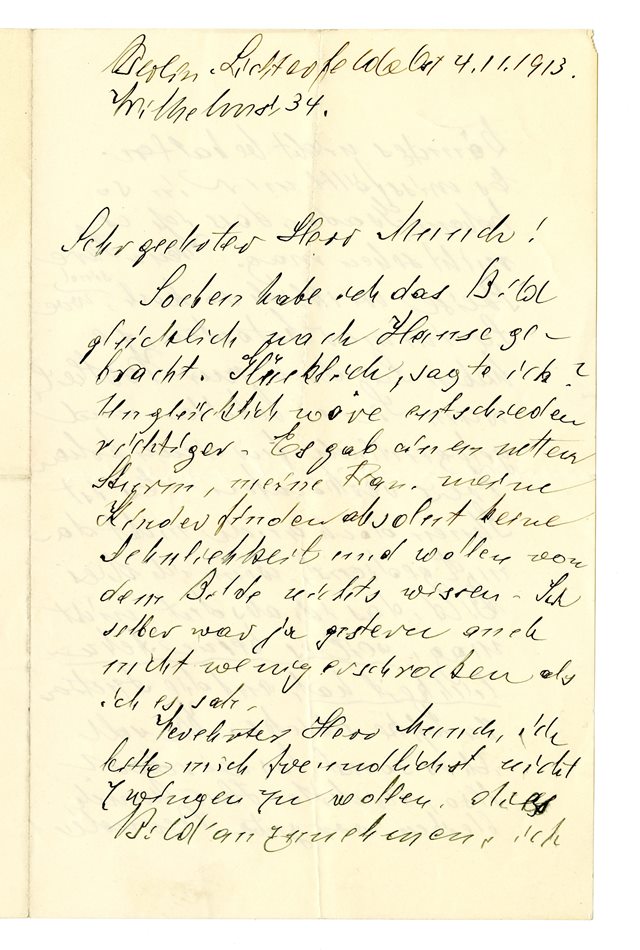 Berlin-Lichterfelde Ost 4.11.1913.
Wilhelmst. 34.
Sehr geehrter Herr Munch!
Soeben habe ich das Bild
glücklich nach Hause ge-
bracht. Glücklich, sagte ich?
Unglücklich wäre entschieden
richtiger - Es gab einen netten
Sturm, meine Frau, meine
Kinder finden absolut keine
Aehnlichkeit und wollen von
dem Bilde nichts wissen - Ich
selber war ja gestern auch
nicht weniger erschrocken als
ich es sah.
Verehrter Herr Munch, ich
bitte mich freundlichst nicht
zwingen zu wollen, dies
Bild anzunehmen, ich